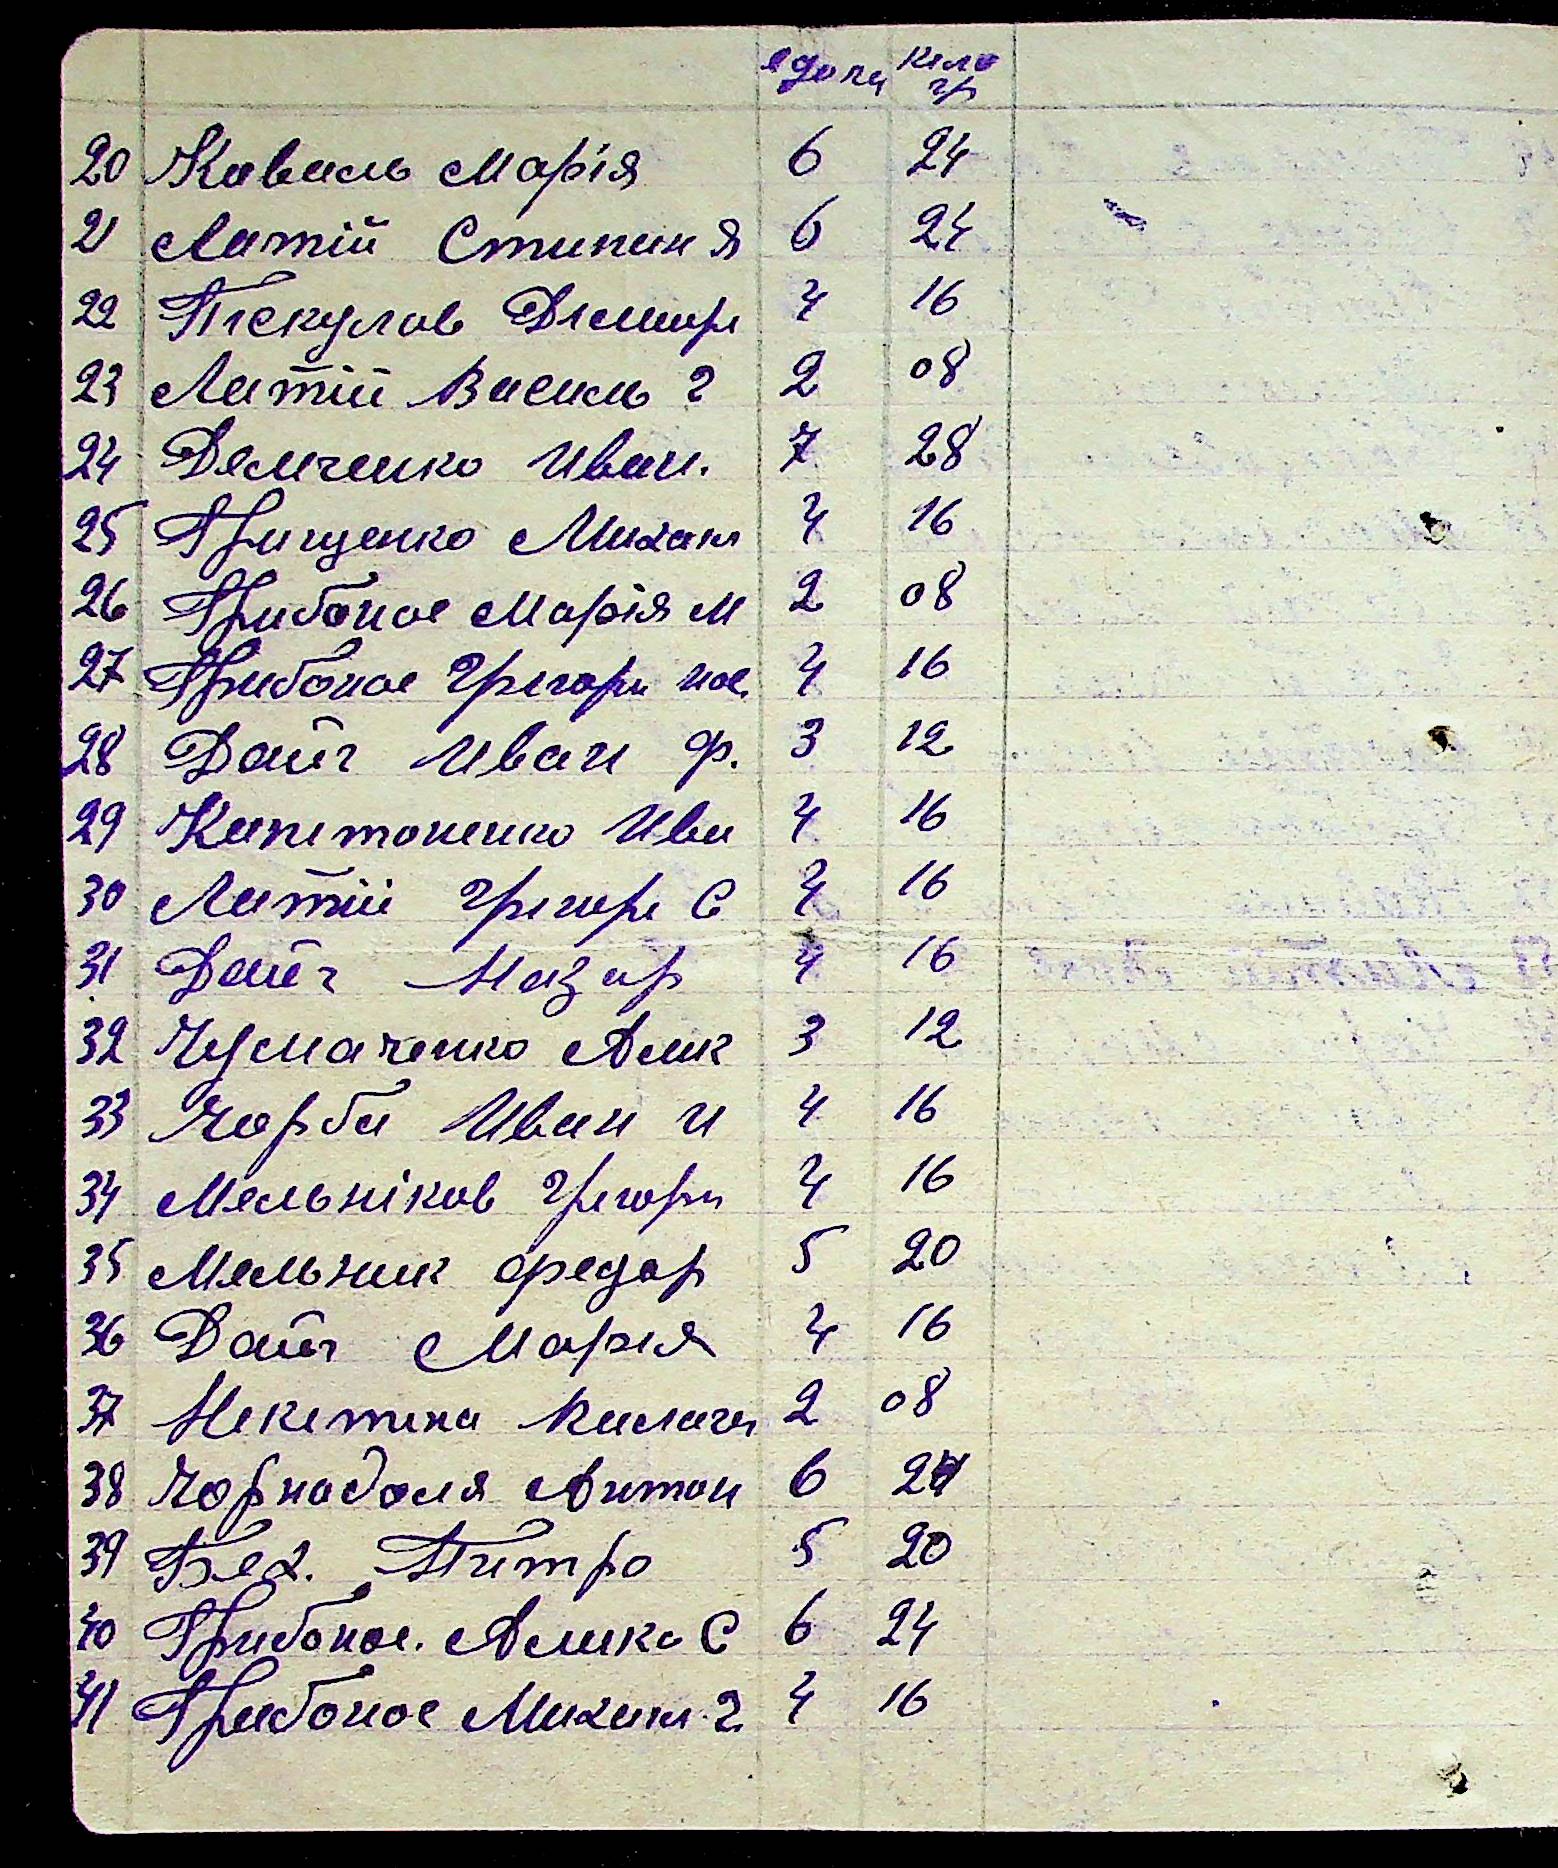 едоки кело гр
20 Коваль Марія 6 24
21 Латій Стипан Я 6 24
22 Пекулов 4 16
23 Латій Василь Г 2 08
24 Демченко Иван. 7 28
25 Грищенко Михаил 4 16
26 Грибонос Марія М 2 08
27 Грибонос Грегори 4 16
28 Дайч Иван Ф. 3 12
29 Капетоненко Ива 4 16
30 Латій Грегоре С 4 16
31 Дайч Назар 4 16
32 Чумаченко Алик 3 12
33 Чорба Иван И 4 16
34 Мельніков Грегори 4 16
35 Мельник Федор 5 20
36 Дайч Марея 4 16
37 Некетена 2 08
38 Чорнадоля Антон 6 24
39 Бех. Питро 5 20
40 Грибонос. Алика С 6 24
41 Грибонос Михаил. Г. 4 16